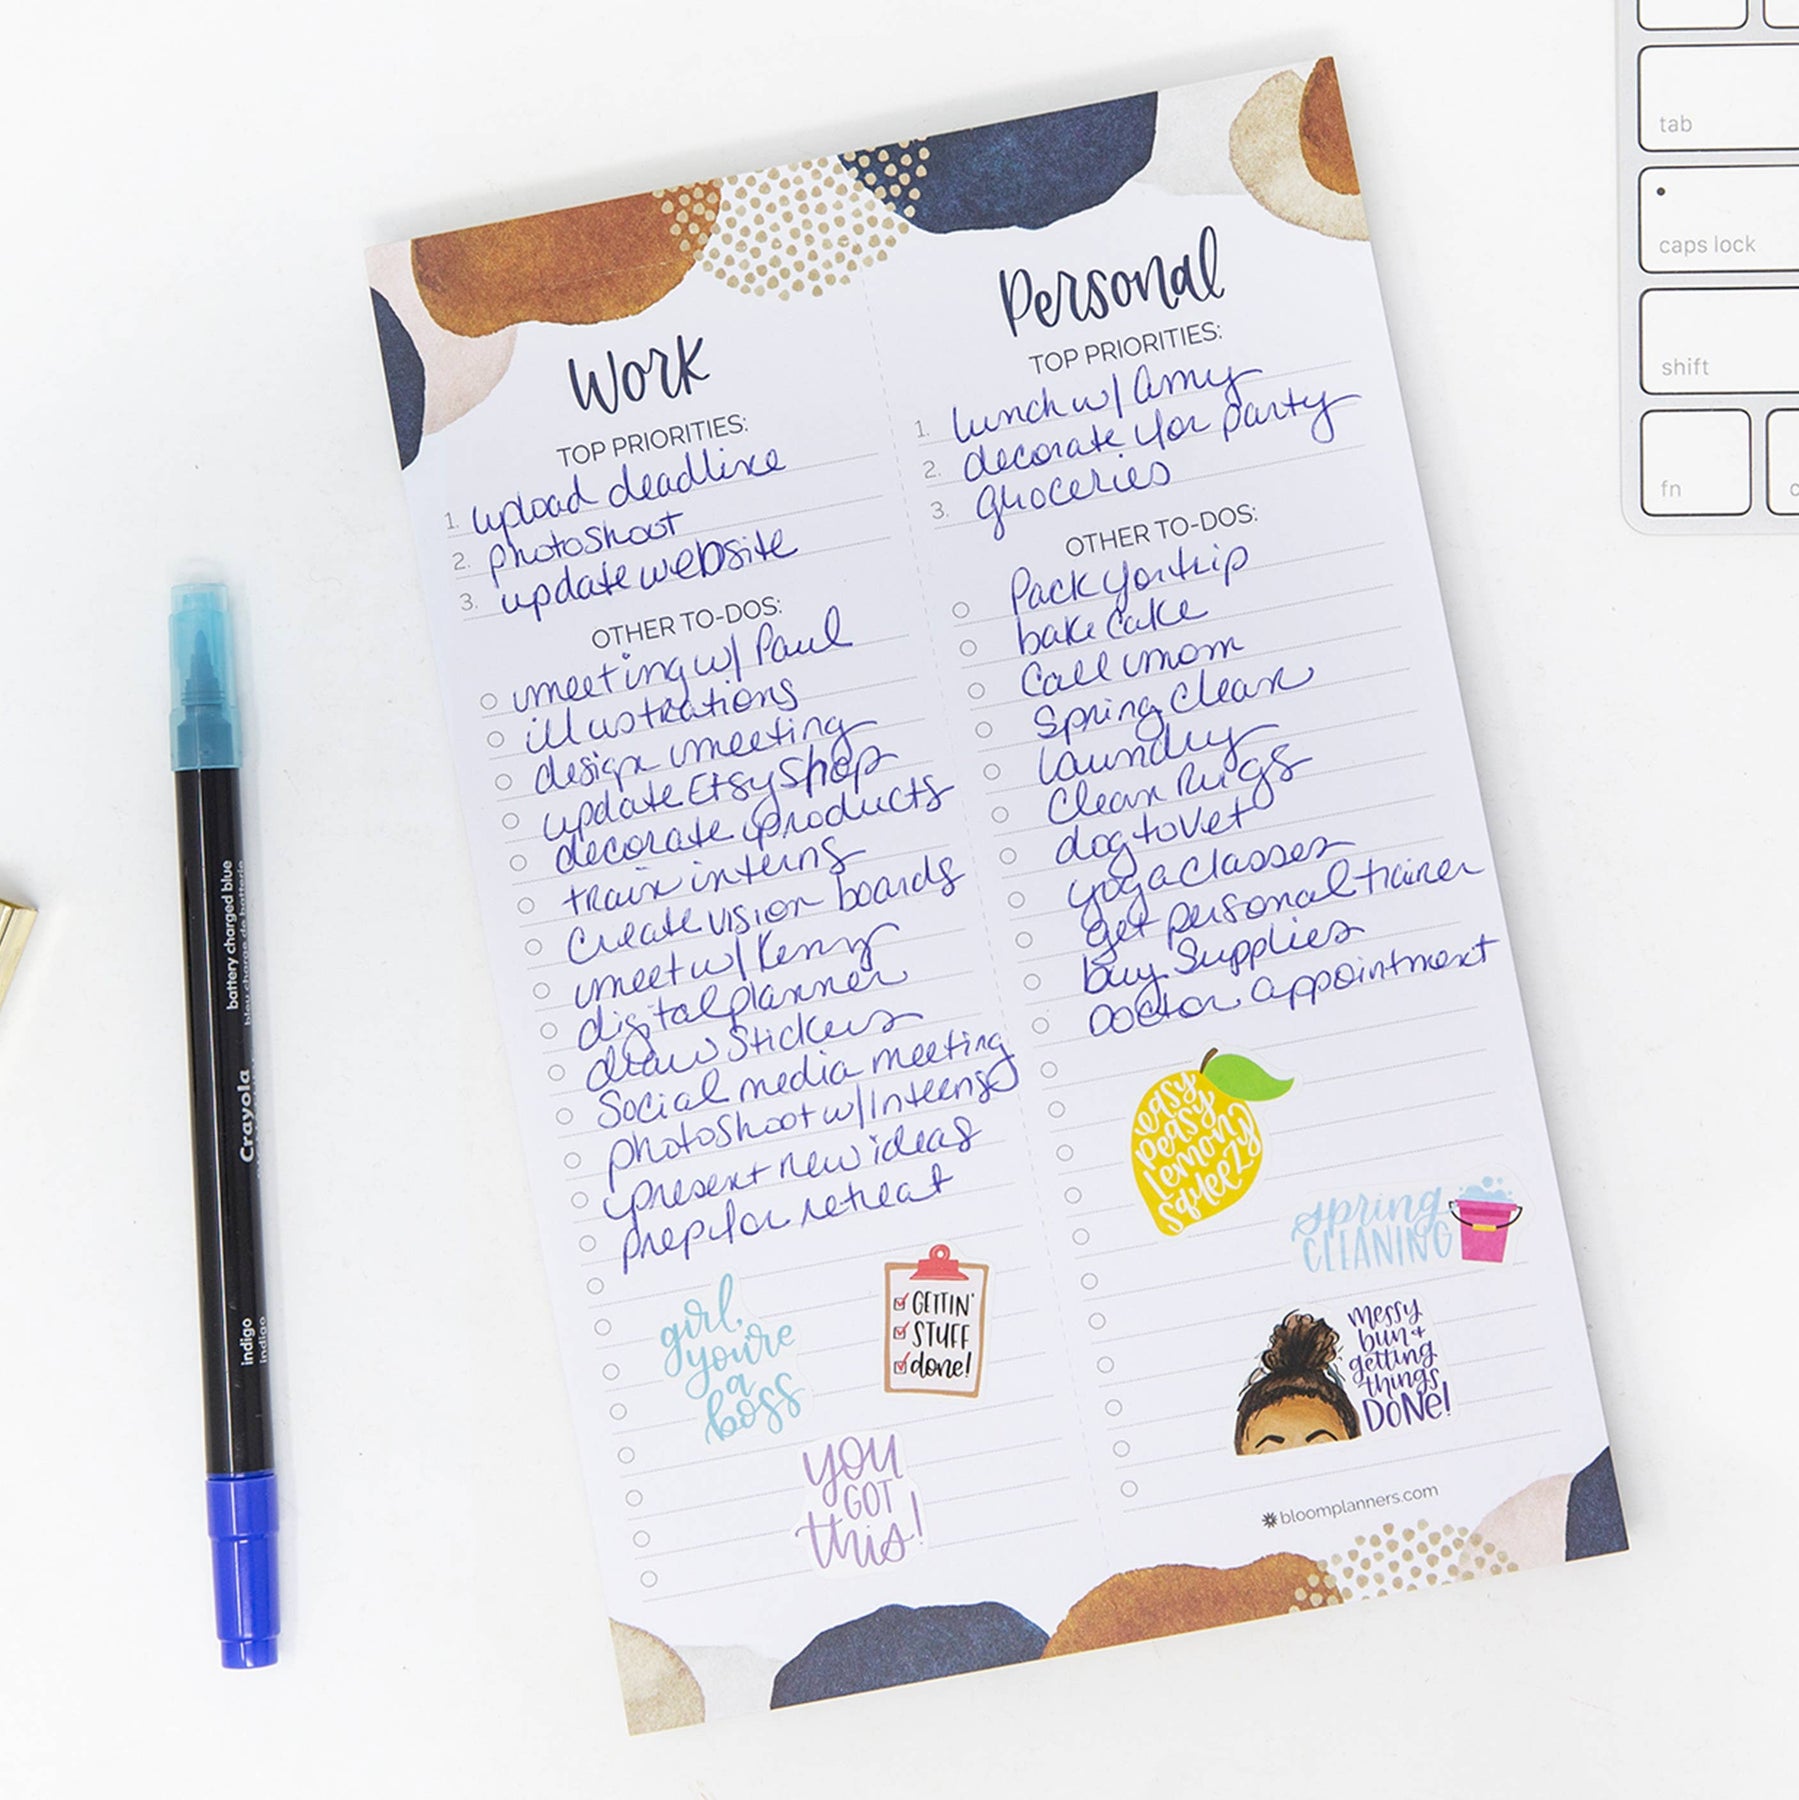 Work
TOP PRIORITIES:
1. upload deadline
2. photoshoot
3. update website
OTHER TO-DOS:
meeting w/ Paul
illustrations
design meeting
update Etsy shop
decorate products
train interns
Create vision boards
meet w/ Kenny
digital planner
draw stickers
Social media meeting
photoshoot w/ Interns
present new ideas
prep for retreat
girl,
you're
a
boss
GETTIN'
STUFF
done!
YOU
GOT
this!
Personal
TOP PRIORITIES:
1. lunch w/ Amy
2. decorate for party
3. groceries
OTHER TO-DOS:
Pack for trip
bake cake
Call mom
Spring clean
laundry
Clean Rugs
dog to vet
yoga classes
get personal trainer
buy supplies
Doctor appointment
easy
peasy
lemon
squeezy
spring
CLEANING
messy
bun +
getting
things
DONE!
bloomplanners.com
battery charged blue
bleu charge de batterie
Crayola
indigo
indigo
tab
caps lock
shift
fn